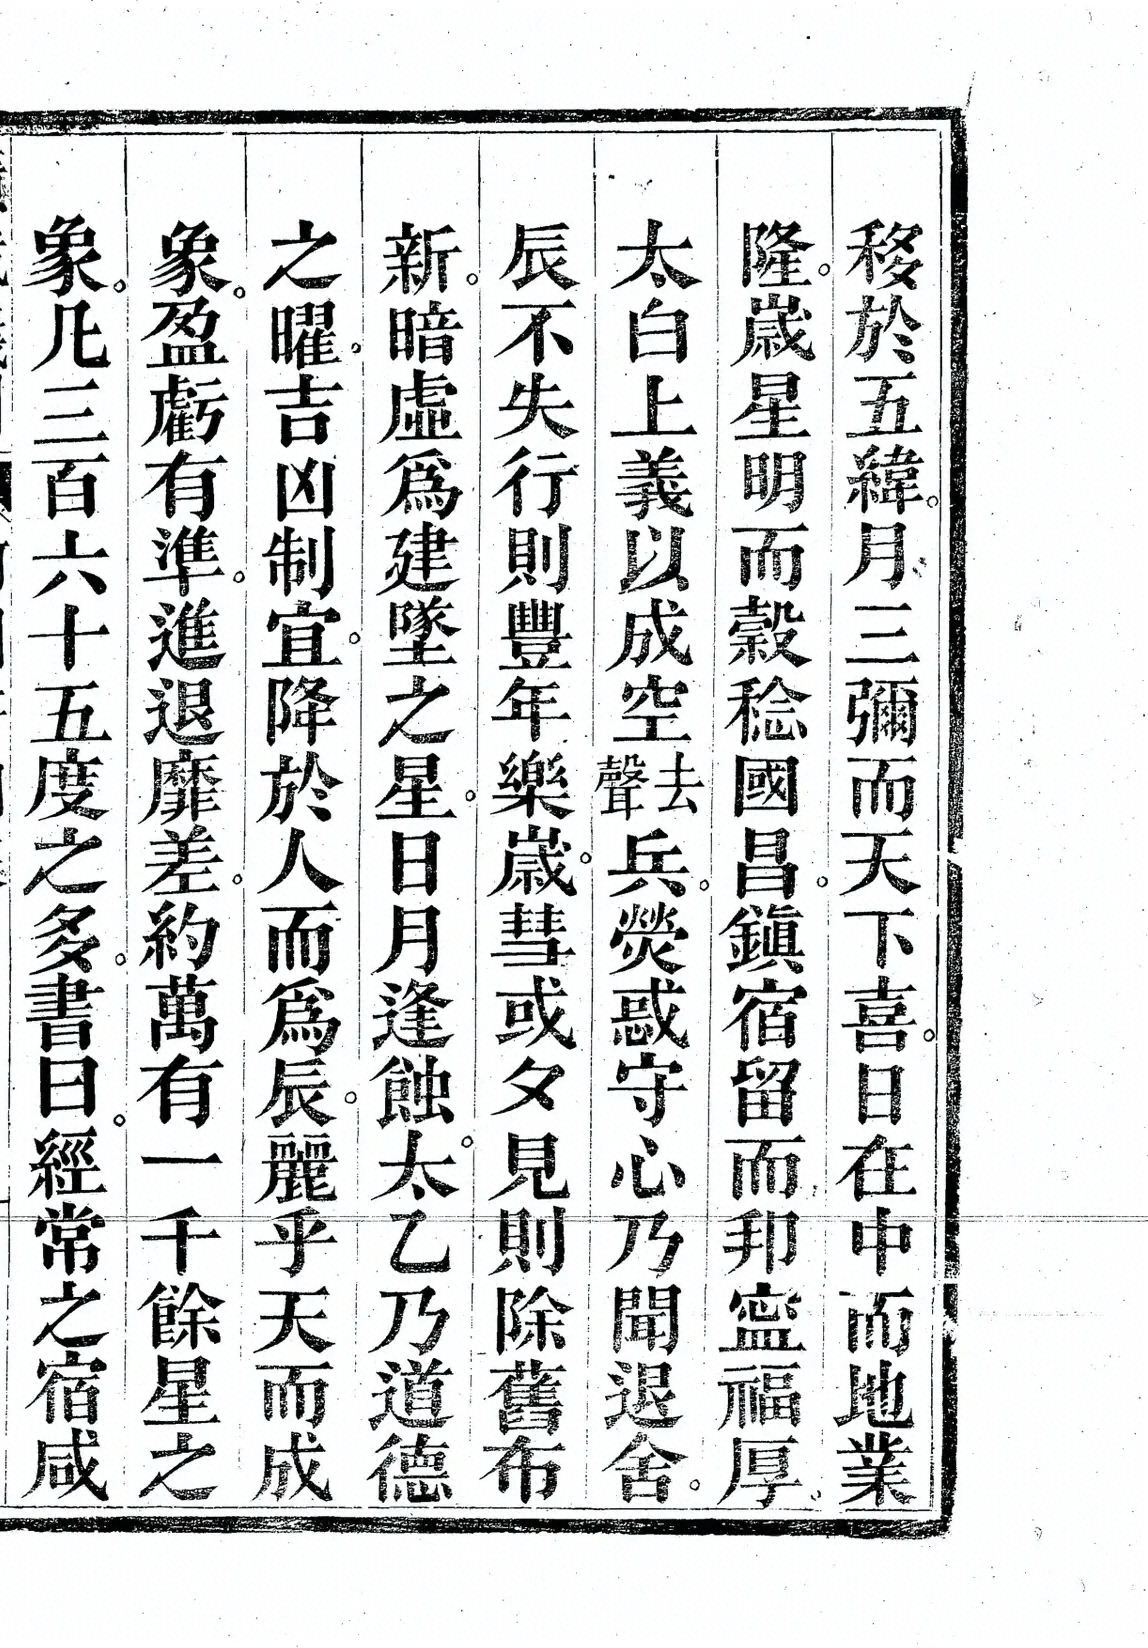 移於五緯。月三彌而天下喜。日在中而地業
隆。歲星明而穀稔國昌。鎮宿留而邦寍福厚。
太白上義以成空去聲兵。熒惑守心乃聞退舍。
辰不失行則豐年樂歲。彗或夕見則除舊布
新。暗虛爲建墜之星。日月逢蝕。太乙乃道德
之曜。吉凶制宜。降於人而爲辰。麗乎天而成
象。盈虧有準。進退靡差。約萬有一千餘星之
象。凡三百六十五度之多。書曰。經常之宿咸